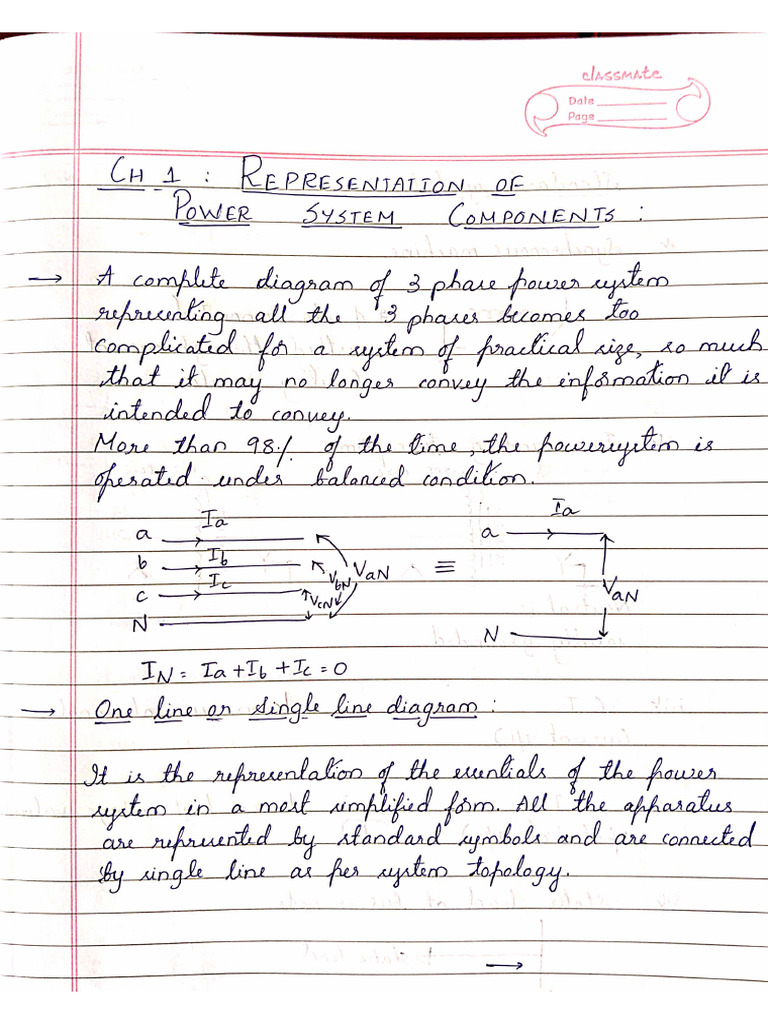 classmate
Date
Page
CH 1 : REPRESENTATION OF
POWER SYSTEM COMPONENTS :
→ A complete diagram of 3 phase power system
representing all the 3 phases becomes too
complicated for a system of practical size, so much
that it may no longer convey the information it is
intended to convey.
More than 98% of the time, the powersystem is
operated under balanced condition.
a Ia
b Ib
c Ic
N
VaN
VbN
VcN
≡
a Ia
VaN
N
IN = Ia + Ib + Ic = 0
→ One line or single line diagram :
It is the representation of the essentials of the power
system in a most simplified form. All the apparatus
are represented by standard symbols and are connected
by single line as per system topology.
→